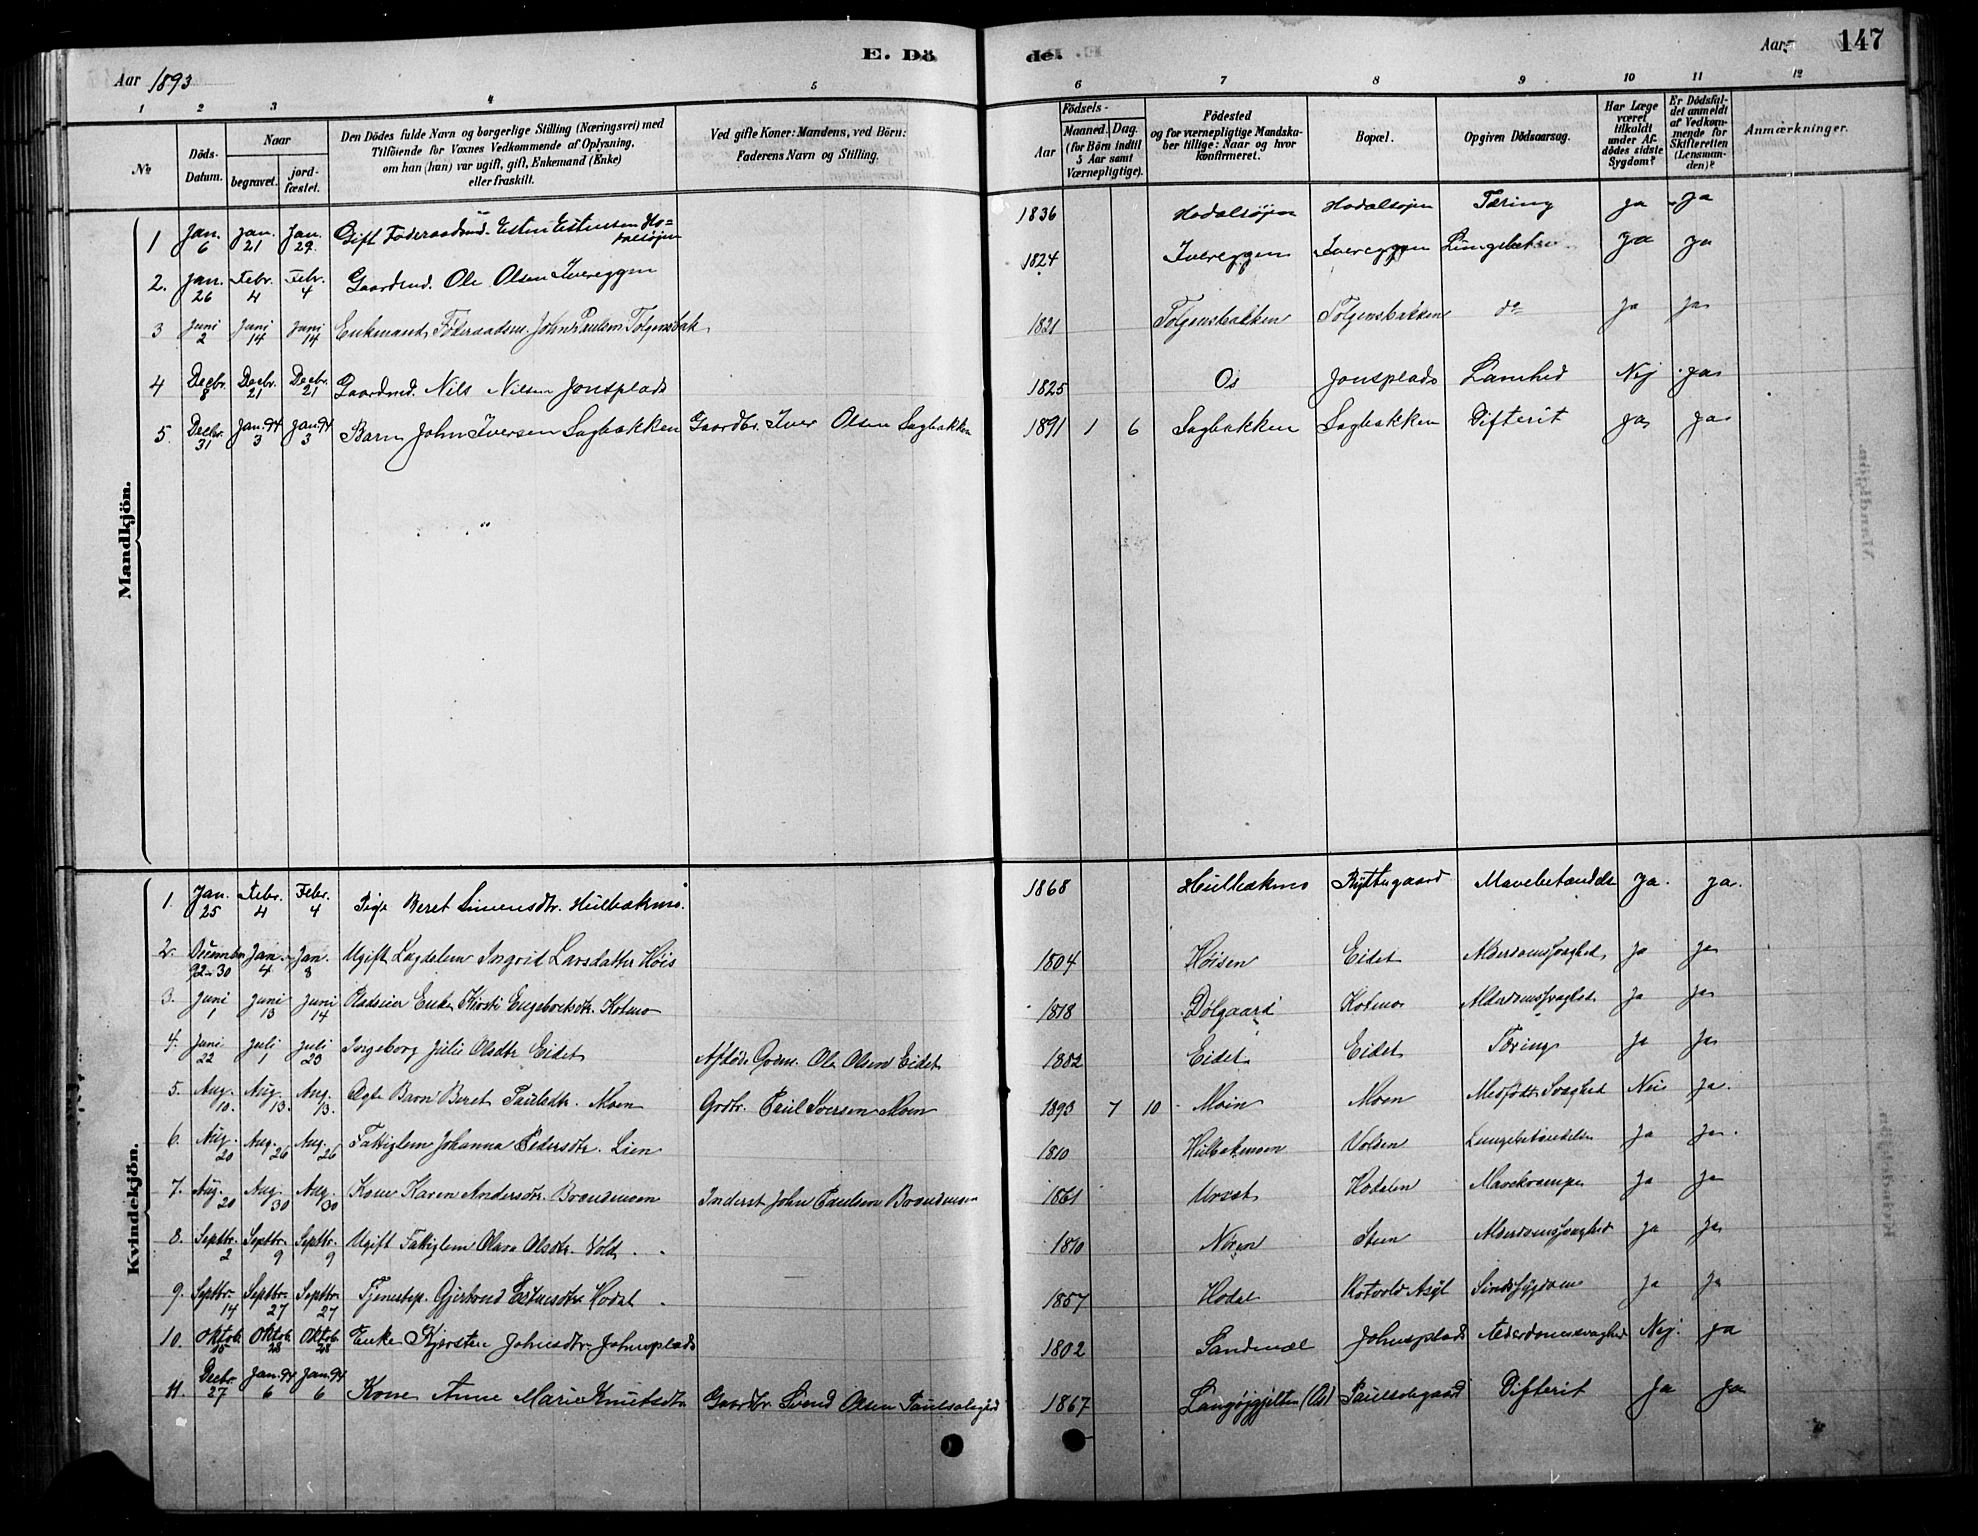 E. Dö
Aar 1893
1 2 3 4 5
Nr
Döds-Datum.
Naar
begravet. jord-fæstet.
Den Dödes fulde Navn og borgerlige Stilling (Næringsvei) med
Tilföiende for Voxnes Vedkommende af Oplysning,
om han (hun) var ugift, gift, Enkemand (Enke)
eller fraskilt.
Ved gifte Koner: Mandens, ved Börn:
Faderens Navn og Stilling.
Mandkjön.
1 Jan. 6 Jan. 21 Jan. 29. Gift Föderaadsmd. Esten Estensen Ho=
dalsøjen
2. Jan. 26 Febr. 4 Febr. 4 Gaardmd. Ole Olsen Ivereggen
3 Juni 2 Juni 14 Juni 14 Enkemand, Föderaadsm. John Paulsen Tolgensbak
4 Decbr. 8 Decbr. 21 Decbr. 21 Gaardmd. Nils Nilsen Jonsplads
5. Decbr. 31 Jan. 94 3 Jan. 94 3 Barn John Iversen Sagbakken Gaardbr. Iver Olsen Sagbakken
Kvindekjön.
1. Jan. 25 Febr. 4 Febr. 4 Pige Beret Simensdtr. Hulbækmo.
2. December 92 30 Jan. 4 Jan. 8 Ugift Lægdelem Ingrid Larsdatter Höis
3. Juni 1 Juni 13 Juni 14 Pladseier Enke Kirsti Engebretsdtr. Kotmo
4. Juni 22 Juli 1 Juli 23 Ingeborg Julie Olsdtr. Eidet Afdöde Ole Olsen Eidet
5. Aug. 10. Aug. 13. Aug. 13. Ægte Barn Beret Paulsdtr. Moen Grdbr. Paul Iversen Moen
6. Aug. 20 Aug. 26 Aug. 26 Fattiglem Johanna Pedersdtr. Lien
7. Aug. 20 Aug. 30 Aug. 30 Kone Karen Andersdtr. Brændmoen Inderst John Paulsen Brændmoen
8. Septbr. 2 Septbr. 9 Septbr. 9 Ugift Fattiglem Olava Olsdtr. Vold
9. Septbr. 14 Septbr. 27 Septbr. 27 Tjenestep. Gjertrud Estensdtr. Hodal
10. Oktob. 15 Oktob. 28 Oktob. 28 Enke Kjersten Johnsdtr. Johnsplads
11. Decbr. 27 Jan. 94 6 Jan. 94 6 Kone Anne Marie Knutsdtr. Gaardbr. Svend Olsen Paulsølegrd
de.
Aar 147
6 7 8 9 10 11 12
Födsels-
Aar Maaned. Dag.
(for Börn indtil
5 Aar samt
Værnepligtige).
Födested
og for værnepligtige Mandska-
ber tillige: Naar og hvor
konfirmeret.
Bopæl.
Opgiven Dödsaarsag.
Har Læge
været
tilkaldt
under Af-
dödes sidste
Sygdom?
Er Dödsfal-
det anmeldt
af Vedkom-
mende for
Skifteretten
(Lensman-
den)?
Anmærkninger.
1836 Hodalsøjen Hodalsøjen Tæring Ja Ja
1824 Ivereggen Ivereggen Lungebet. Ja Ja
1821 Tolgensbakken Tolgensbakken do Ja Ja
1825 Os Jonsplads Lamhed Nej Ja
1891 1 6 Sagbakken Sagbakken Difterit Ja Ja
1868 Hulbækmo Ryttugaard Mavebetændelse Ja. Ja.
1804 Höisen Eidet Alderdomssvaghed Ja Ja
1818 Dölgaard Kotmo Alderdomssvaghed Ja Ja
1882 Eidet Eidet Tæring Ja Ja
1893 7 10 Moen Moen Medfödt Svaghed Nei Ja
1810 Hulbækmoen Volden Lungebetændelse Ja Ja.
1861 Urset Hodalen Mavekrampe Ja Ja
1810 Nören Steen Alderdomssvaghed Ja Ja
1857 Hodal Rotvold Asyl Sindssygdom Ja Ja
1802 Sandmæl Johnsplads Alderdomssvaghed Nej. Ja
1867 Langøjgjelten (Os) Paulsølegaard Difterit Ja Ja